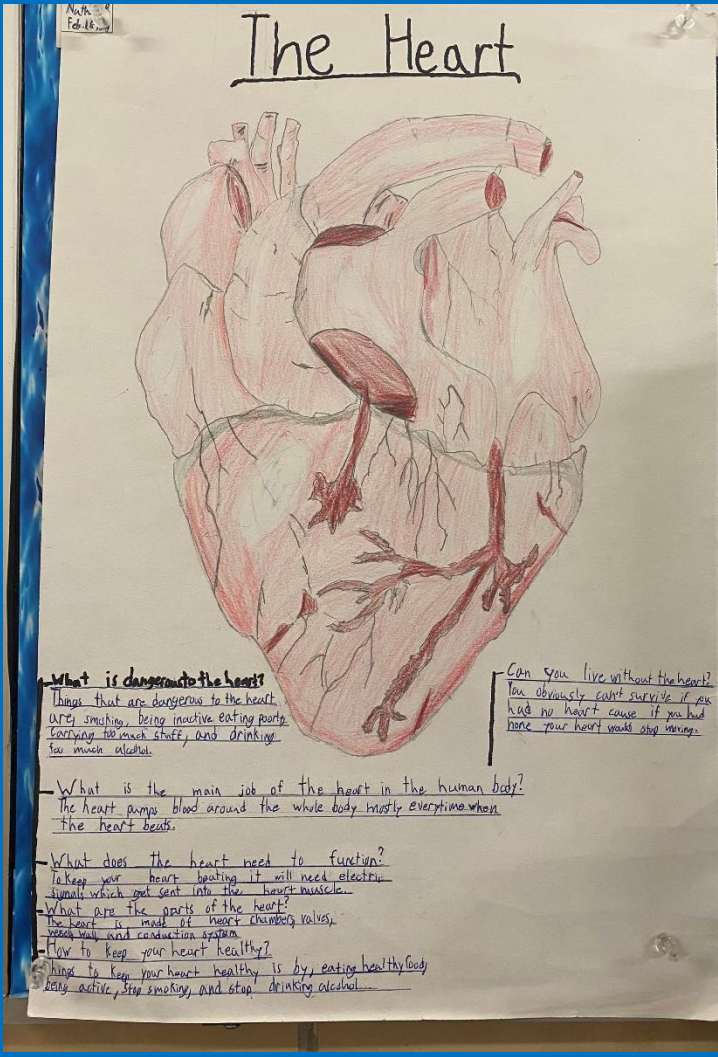 Nath
Feb.
The Heart
What is dangerous to the heart?
Things that are dangerous to the heart
are, smoking, being inactive eating poorly
carrying too much stuff, and drinking
too much alcohol.
Can you live without the heart?
You obviously can't survive if you
had no heart cause if you had
none your heart would stop moving.
What is the main job of the heart in the human body?
The heart pumps blood around the whole body mostly everytime when
the heart beats.
What does the heart need to function?
To keep your heart beating it will need electric
signals which get sent into the heart muscle.
What are the parts of the heart?
The heart is made of heart chambers, valves,
wall, and conduction system
How to keep your heart healthy?
Things to keep your heart healthy is by, eating healthy food,
being active, stop smoking, and stop drinking alcohol